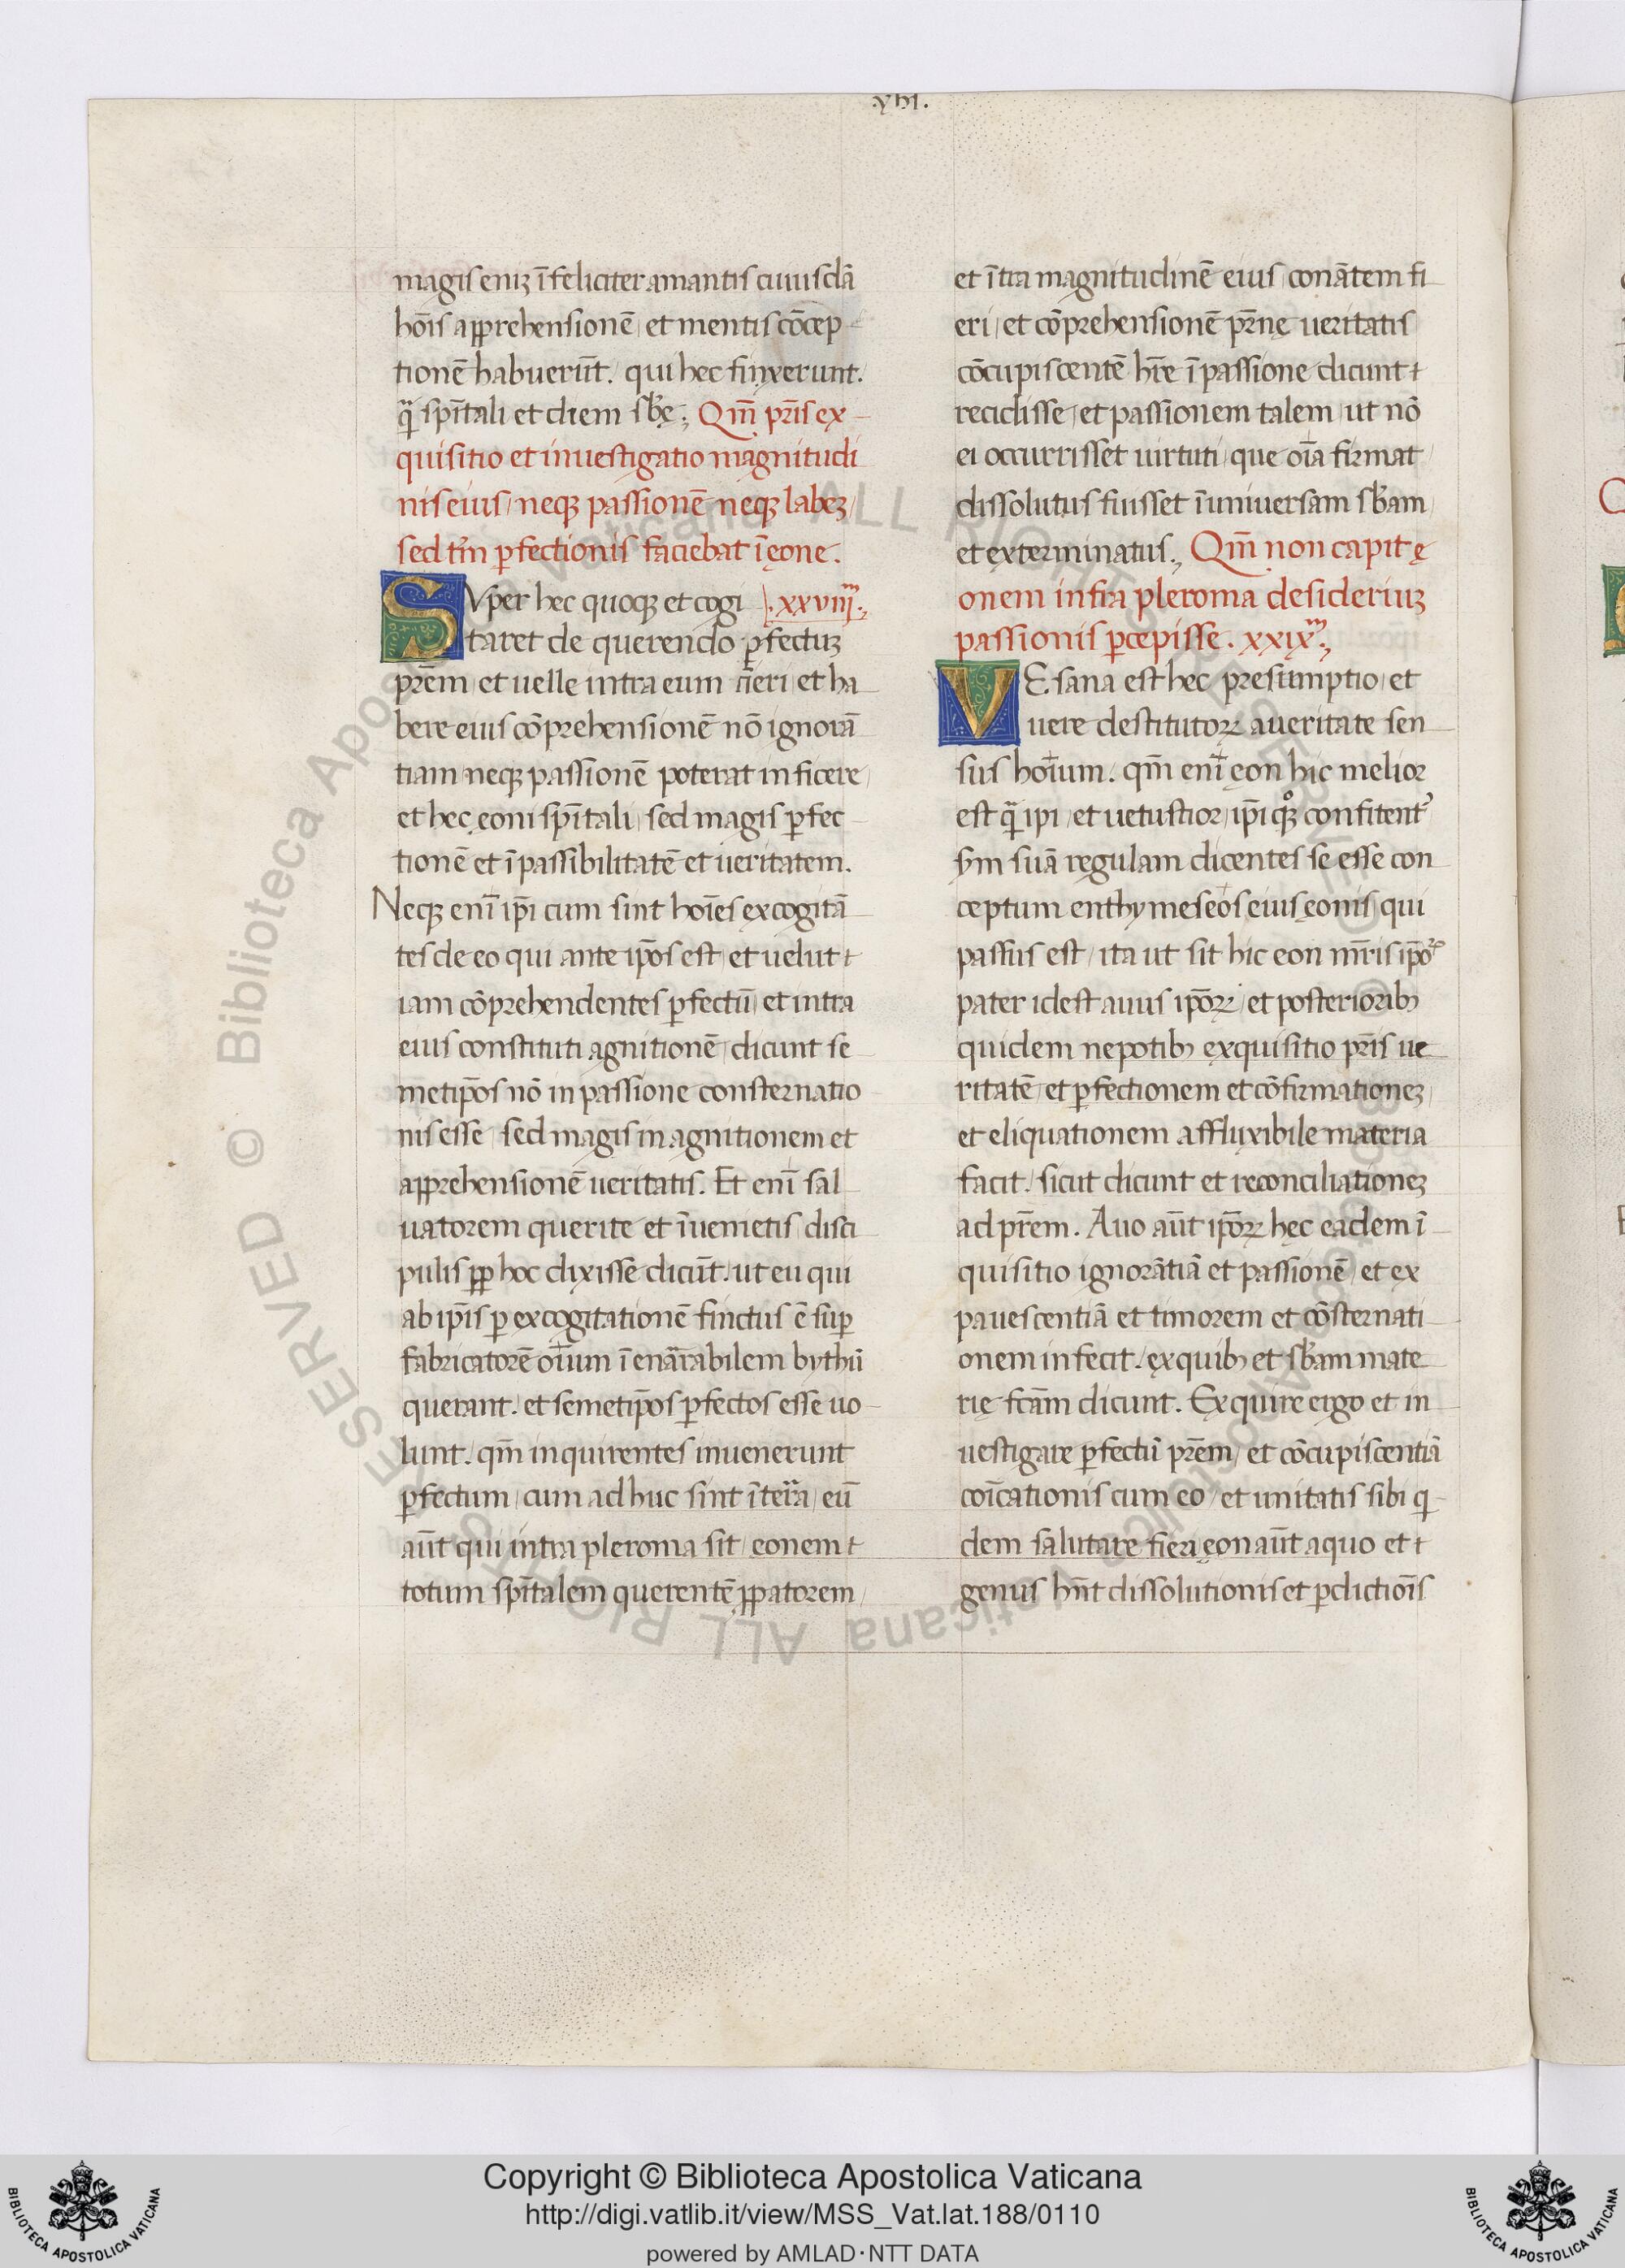 .xvi.
magis eniȝ īfeliciter amantis cuiusdā
hoīs apprehensionē et mentis cōcep
tionē habuerūt. qui hec finxerunt.
q̄ spītali et diem sb̄ę; Qm̄ pr̄is ex
quisitio et inuestigatio magnitudi
nis eius neqȝ passionē neqȝ labeȝ
sed tm̄ ꝑfectionis faciebat ī ęone.
SVper hec quoqȝ et cogi .xxviii.
taret de querendo ꝑfectuȝ
pr̄em et uelle intra eum fieri et ha
bere eius cōprehensionē nō ignorā
tiam neqȝ passionē poterat inficere
et hec ęoni spītali sed magis ꝑfec
tionē et īpassibilitatē et ueritatem.
Neqȝ enī ip̄i cum sint hoīes excogitā
tes de eo qui ante ip̄os est et uelut
iam cōprehendentes ꝑfectū et intra
eius constituti agnitionē dicunt se
metip̄os nō in passione consternatio
nis esse sed magis in agnitionem et
apprehensionē ueritatis. Et enī sal
uatorem querite et īuenietis disci
pulis ꝓp hoc dixisse dicūt. ut eū qui
ab ip̄is ꝑ excogitationē finctus ē suꝑ
fabricatorē oīum īenārrabilem bythū
querant. et semetip̄os ꝑfectos esse uo
lunt. qm̄ inquirentes inuenerunt
ꝑfectum cum adhuc sint ī terra eū
aūt qui intra pleroma sit ęonem
totum spītalem querentē ꝓpatorem
et ītra magnitudinē eius conātem fi
eri et cōprehensionē pr̄nę ueritatis
cōcupiscentē hr̄e ī passione dicunt
recidisse et passionem talem ut nō
ei occurrisset uirtuti que oīa firmat
dissolutus fuisset ī uniuersam sb̄am
et exterminatus. Qm̄ non capit ę
onem infra pleroma desideriuȝ
passionis ꝑcepisse. xxix.
VEsana est hec presumptio et
uere destitutoꝝ a ueritate sen
sus hoīum. qm̄ enī ęon hic melior
est q̄ ip̄i et uetustior ip̄i qͦqȝ confitent᷑
sm̄ suā regulam dicentes se esse con
ceptum enthymeseōs eius ęonis qui
passus est ita ut sit hic eon mr̄is ip̄oꝝ
pater idest auus ip̄oꝝ et posteriorib;
quidem nepotib; exquisitio pr̄is ue
ritatē et ꝑfectionem et cōfirmationeȝ
et eliquationem affluxibile materia
facit. sicut dicunt et reconciliationeȝ
ad pr̄em. Auo aūt ip̄oꝝ hęc eadem ī
quisitio ignorātiā et passionē et ex
pauescentiā et timorem et cōsternati
onem infecit. ex quib; et sb̄am mate
rię fcām dicunt. Exquire ergo et in
uestigare ꝑfectū pr̄em et cōcupiscentiā
coīcationis cum eo et unitatis sibi q
dem salutare fieri ęon aūt a quo et
genus hn̄t dissolutionis et ꝑdictioīs
Copyright © Biblioteca Apostolica Vaticana
http://digi.vatlib.it/view/MSS_Vat.lat.188/0110
powered by AMLAD·NTT DATA
BIBLIOTECA APOSTOLICA VATICANA
BIBLIOTECA APOSTOLICA VATICANA